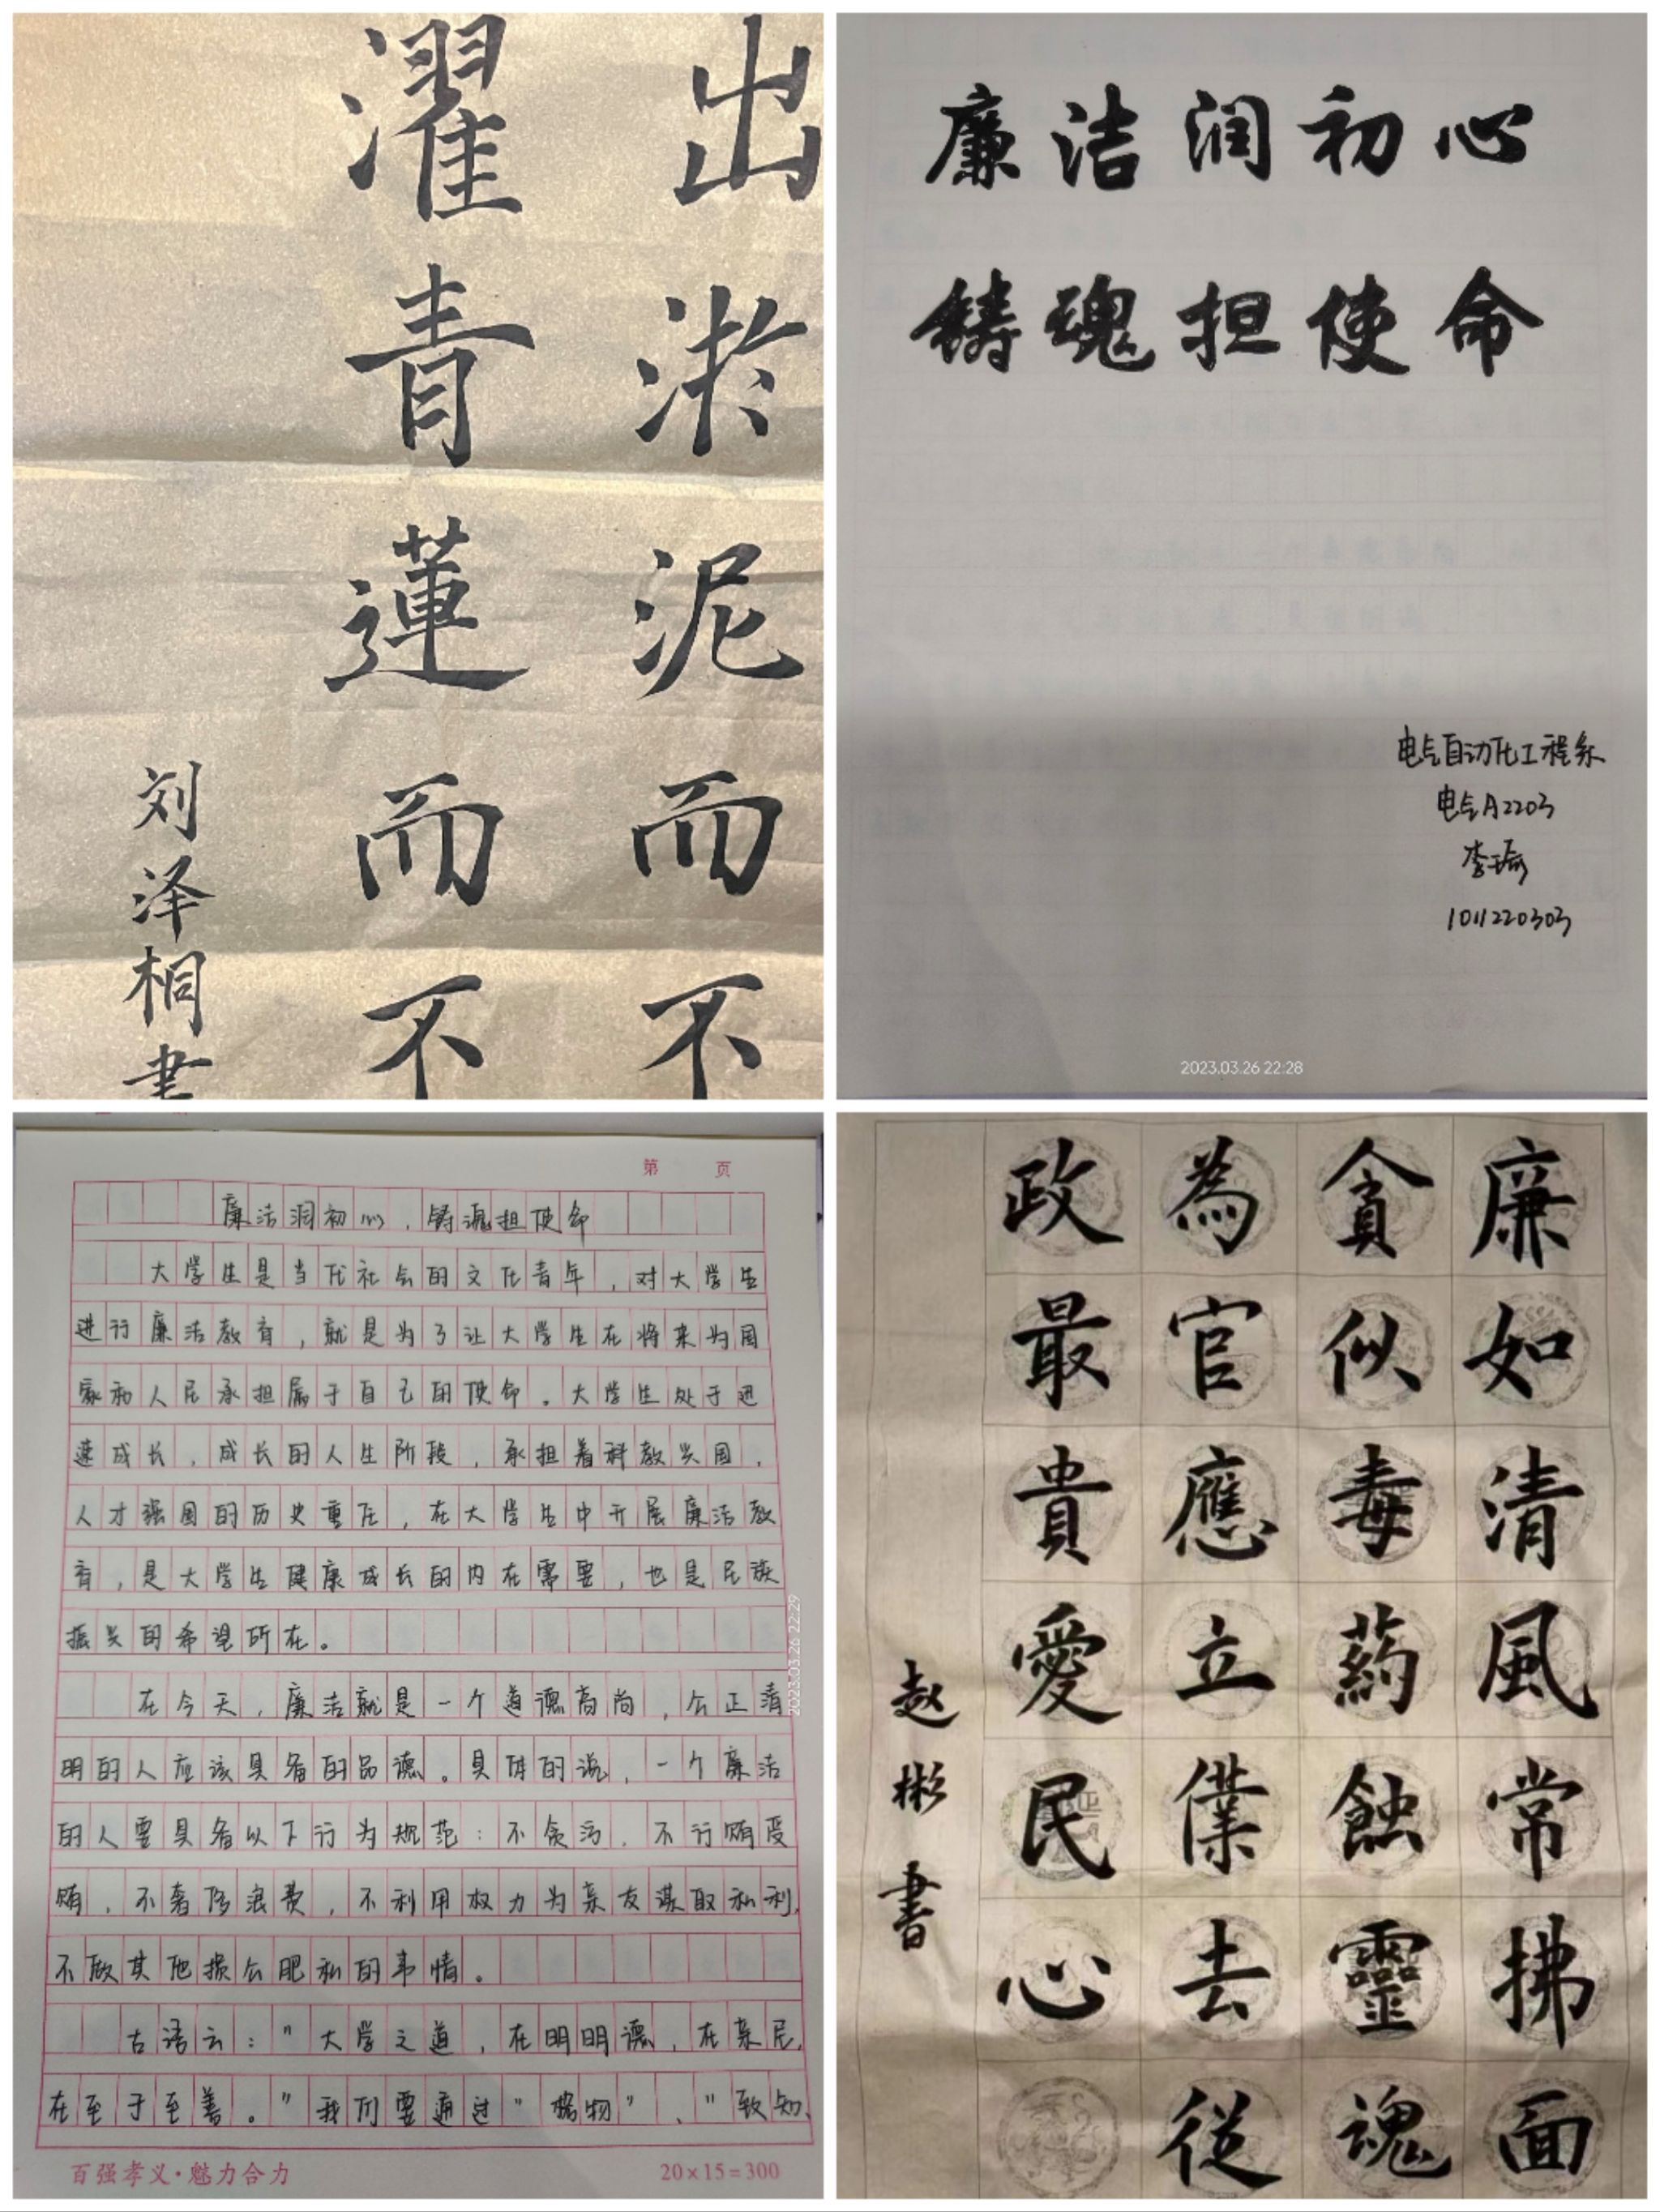 出淤泥而不
濯青蓮而不
刘泽桐書
廉洁润初心
铸魂担使命
电气自动化工程系
电气A2203
李瑜
1011220303
2023.03.26 22:28
第 页
廉洁润初心，铸魂担使命
大学生是当代社会的文化青年，对大学生
进行廉洁教育，就是为了让大学生在将来为国
家和人民承担属于自己的使命。大学生处于迅
速成长，成长的人生阶段，承担着科教兴国，
人才强国的历史重任，在大学生中开展廉洁教
育，是大学生健康成长的内在需要，也是民族
振兴的希望所在。
在今天，廉洁就是一个道德高尚，公正清
明的人应该具备的品德。具体的说，一个廉洁
的人要具备以下行为规范：不贪污，不行贿受
贿，不奢侈浪费，不利用权力为亲友谋取私利，
不做其他损公肥私的事情。
古语云："大学之道，在明明德，在亲民，
在至于至善。"我们要通过"格物"、"致知、
百强孝义·魅力合力
20×15=300
2023.03.26 22:29
廉如清風常拂面
貪似毒药蝕靈魂
為官應立僕去從
政最貴愛民心
赵彬書